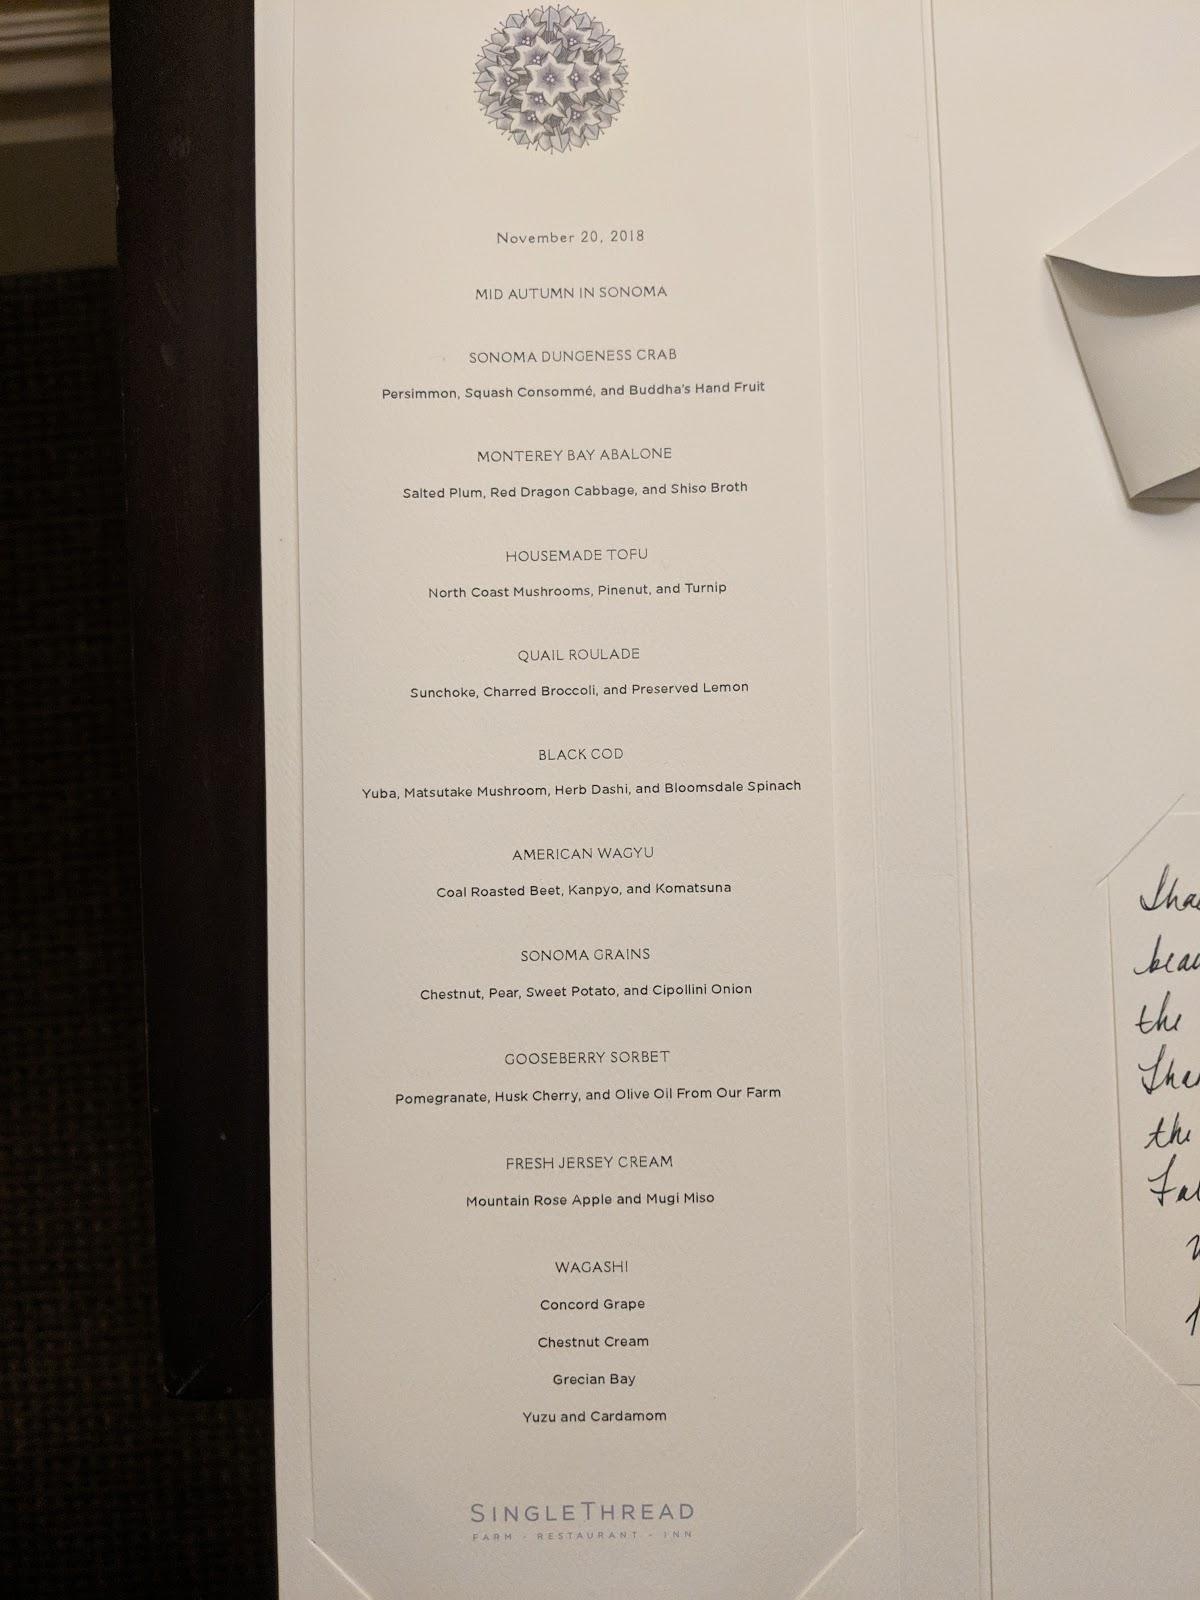 November 20, 2018
MID AUTUMN IN SONOMA
SONOMA DUNGENESS CRAB
Persimmon, Squash Consommé, and Buddha's Hand Fruit
MONTEREY BAY ABALONE
Salted Plum, Red Dragon Cabbage, and Shiso Broth
HOUSEMADE TOFU
North Coast Mushrooms, Pinenut, and Turnip
QUAIL ROULADE
Sunchoke, Charred Broccoli, and Preserved Lemon
BLACK COD
Yuba, Matsutake Mushroom, Herb Dashi, and Bloomsdale Spinach
AMERICAN WAGYU
Coal Roasted Beet, Kanpyo, and Komatsuna
SONOMA GRAINS
Chestnut, Pear, Sweet Potato, and Cipollini Onion
GOOSEBERRY SORBET
Pomegranate, Husk Cherry, and Olive Oil From Our Farm
FRESH JERSEY CREAM
Mountain Rose Apple and Mugi Miso
WAGASHI
Concord Grape
Chestnut Cream
Grecian Bay
Yuzu and Cardamom
SINGLETHREAD
FARM - RESTAURANT - INN
the
the